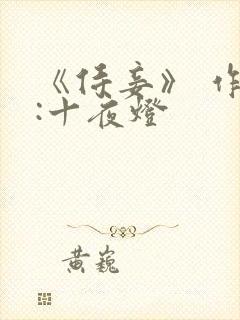 《侍妾》 作
:十夜燈
黄巍